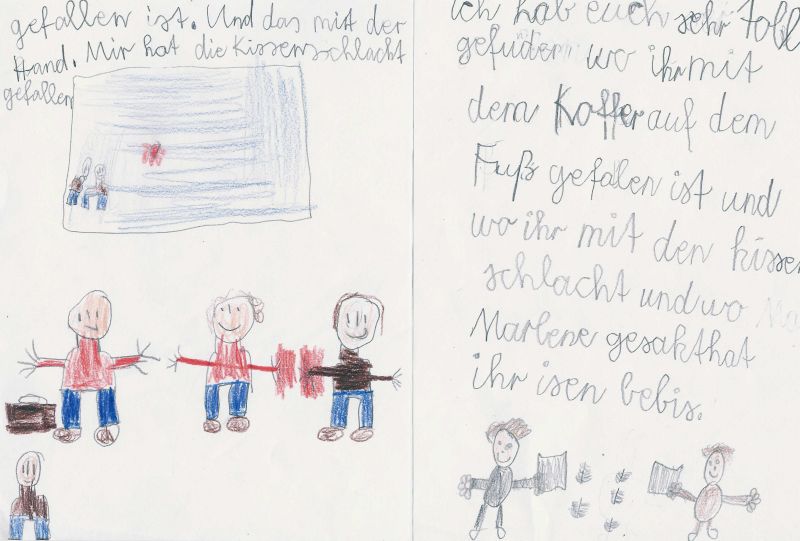 gefallen ist. Und das mit der
Hand. Mir hat die Kissenschlacht
gefallen
ich hab euch sehr toll
gefuden wo ihr mit
dem Koffer auf dem
Fuß gefalen ist und
wo ihr mit den kissen
schlacht und wo
Marlene gesakt hat
ihr isen bebis.